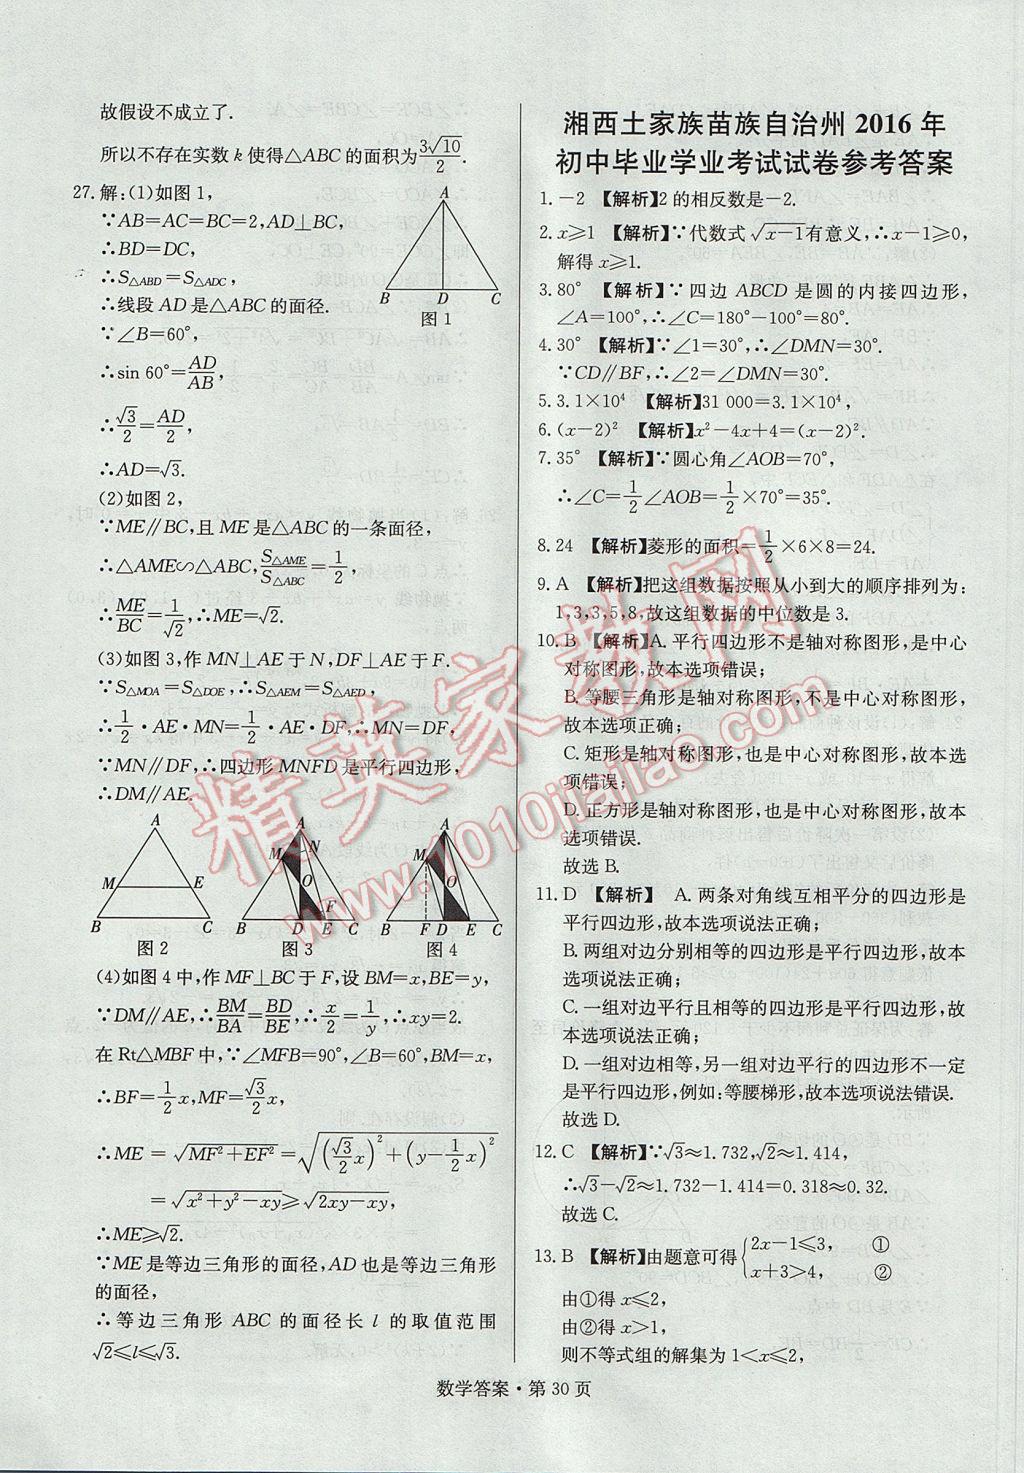 故假设不成立了.
所以不存在实数 k 使得△ABC 的面积为 3√10/2.
27.解:(1)如图 1,
∵AB=AC=BC=2,AD⊥BC,
∴BD=DC,
∴S△ABD=S△ADC,
∴线段 AD 是△ABC 的面径.
∵∠B=60°,
∴sin 60°=AD/AB,
∴√3/2=AD/2,
∴AD=√3.
A
B D C
图 1
(2)如图 2,
∵ME∥BC,且 ME 是△ABC 的一条面径,
∴△AME∽△ABC,S△AME/S△ABC=1/2,
∴ME/BC=1/√2,∴ME=√2.
(3)如图 3,作 MN⊥AE 于 N,DF⊥AE 于 F.
∵S△MOA=S△DOE,∴S△AEM=S△AED,
∴1/2·AE·MN=1/2·AE·DF,∴MN=DF,
∵MN∥DF,∴四边形 MNFD 是平行四边形,
∴DM∥AE.
A
M E
B C
图 2
A
M N
O
F
B D E C
图 3
A
M
O
B F D E C
图 4
(4)如图 4 中,作 MF⊥BC 于 F,设 BM=x,BE=y,
∵DM∥AE,∴BM/BA=BD/BE,∴x/2=1/y,∴xy=2.
在 Rt△MBF 中,∵∠MFB=90°,∠B=60°,BM=x,
∴BF=1/2x,MF=√3/2x,
∴ME=√(MF²+EF²)=√((√3/2x)²+(y-1/2x)²)
=√(x²+y²-xy)≥√(2xy-xy),
∴ME≥√2.
∵ME 是等边三角形的面径,AD 也是等边三角形
的面径,
∴等边三角形 ABC 的面径长 l 的取值范围
√2≤l≤√3.
湘西土家族苗族自治州 2016 年
初中毕业学业考试试卷参考答案
1.-2 【解析】2 的相反数是-2.
2.x≥1 【解析】∵代数式√(x-1)有意义,∴x-1≥0,
解得 x≥1.
3.80° 【解析】∵四边 ABCD 是圆的内接四边形,
∠A=100°,∴∠C=180°-100°=80°.
4.30° 【解析】∵∠1=30°,∴∠DMN=30°.
∵CD∥BF,∴∠2=∠DMN=30°.
5.3.1×10⁴ 【解析】31 000=3.1×10⁴,
6.(x-2)² 【解析】x²-4x+4=(x-2)².
7.35° 【解析】∵圆心角∠AOB=70°,
∴∠C=1/2∠AOB=1/2×70°=35°.
8.24 【解析】菱形的面积=1/2×6×8=24.
9.A 【解析】把这组数据按照从小到大的顺序排列为:
1,3,3,5,8,故这组数据的中位数是 3.
10.B 【解析】A.平行四边形不是轴对称图形,是中心
对称图形,故本选项错误;
B.等腰三角形是轴对称图形,不是中心对称图形,
故本选项正确;
C.矩形是轴对称图形,也是中心对称图形,故本选
项错误;
D.正方形是轴对称图形,也是中心对称图形,故本
选项错误.
故选 B.
11.D 【解析】 A.两条对角线互相平分的四边形是
平行四边形,故本选项说法正确;
B.两组对边分别相等的四边形是平行四边形,故本
选项说法正确;
C.一组对边平行且相等的四边形是平行四边形,故
本选项说法正确;
D.一组对边相等,另一组对边平行的四边形不一定
是平行四边形,例如:等腰梯形,故本选项说法错误.
故选 D.
12.C 【解析】∵√3≈1.732,√2≈1.414,
∴√3-√2≈1.732-1.414=0.318≈0.32.
故选 C.
13.B 【解析】由题意可得{2x-1≤3, ①
x+3>4, ②
由①得 x≤2,
由②得 x>1,
则不等式组的解集为 1<x≤2,
数学答案·第 30 页
精英家教网
www.1010jiajiao.com